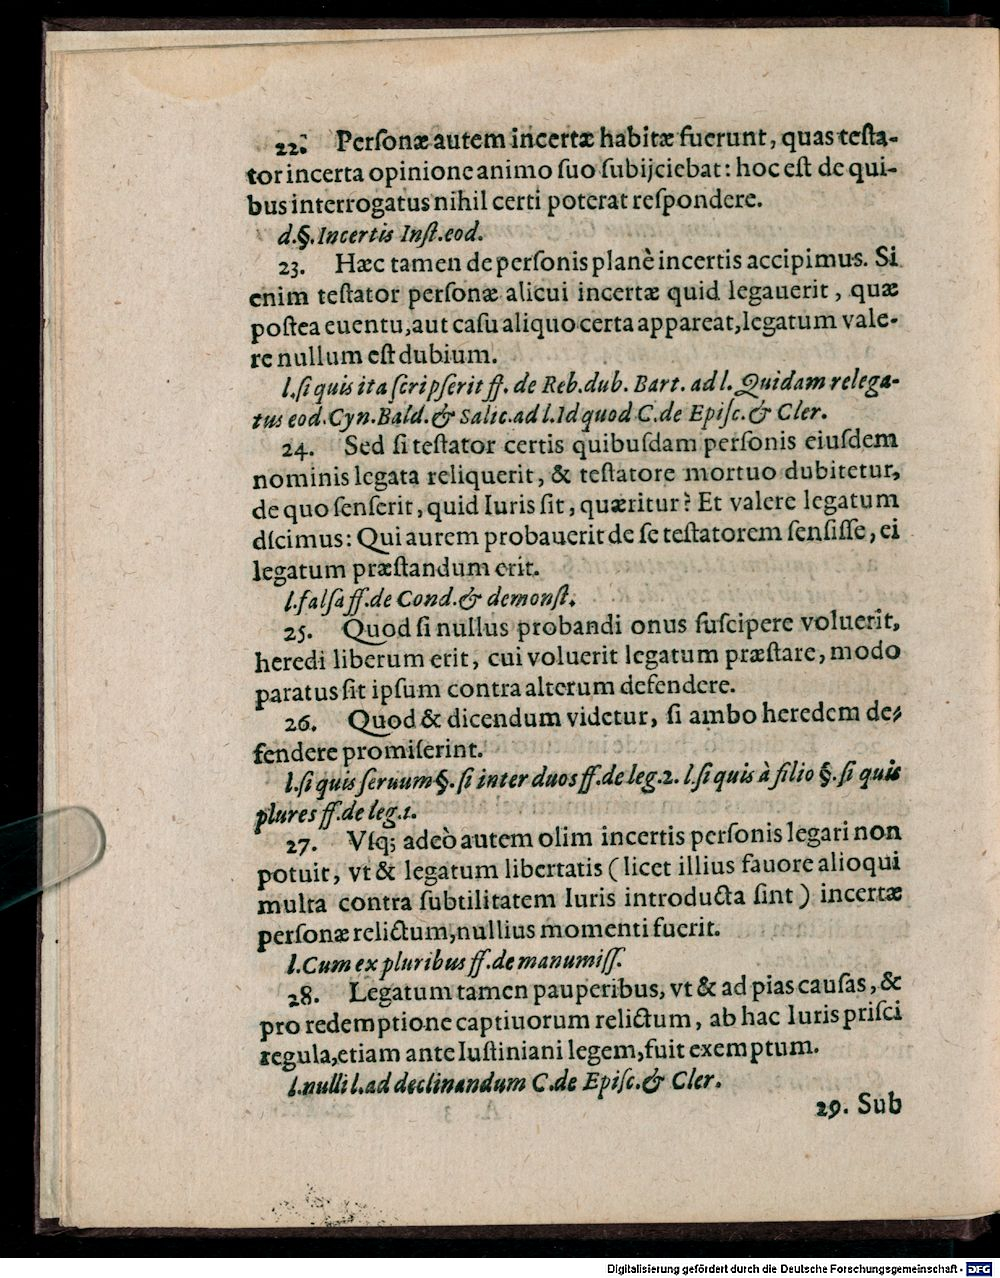 22. Personæ autem incertæ habitæ fuerunt, quas testa-
tor incerta opinione animo suo subijciebat: hoc est de qui-
bus interrogatus nihil certi poterat respondere.
d.§. Incertis Inst.eod.
23. Hæc tamen de personis planè incertis accipimus. Si
enim testator personæ alicui incertæ quid legauerit, quæ
postea euentu, aut casu aliquo certa appareat, legatum vale-
re nullum est dubium.
l.si quis ita scripserit ff. de Reb.dub. Bart. ad l. Quidam relega-
tus eod. Cyn. Bald. & Salic. ad l. Id quod C.de Episc. & Cler.
24. Sed si testator certis quibusdam personis eiusdem
nominis legata reliquerit, & testatore mortuo dubitetur,
de quo senserit, quid Iuris sit, quæritur? Et valere legatum
dicimus: Qui aurem probauerit de se testatorem sensisse, ei
legatum præstandum erit.
l.falsa ff.de Cond. & demonst.
25. Quod si nullus probandi onus suscipere voluerit,
heredi liberum erit, cui voluerit legatum præstare, modo
paratus sit ipsum contra alterum defendere.
26. Quod & dicendum videtur, si ambo heredem de-
fendere promiserint.
l.si quis seruum §. si inter duos ff.de leg.2. l.si quis à filio §. si quis
plures ff.de leg.1.
27. Vsq; adeò autem olim incertis personis legari non
potuit, vt & legatum libertatis (licet illius fauore alioqui
multa contra subtilitatem Iuris introducta sint) incertæ
personæ relictum, nullius momenti fuerit.
l.Cum ex pluribus ff.de manumiss.
28. Legatum tamen pauperibus, vt & ad pias causas, &
pro redemptione captiuorum relictum, ab hac Iuris prisci
regula, etiam ante Iustiniani legem, fuit exemptum.
l.nulli l.ad declinandum C.de Episc. & Cler.
29. Sub
Digitalisierung gefördert durch die Deutsche Forschungsgemeinschaft - DFG